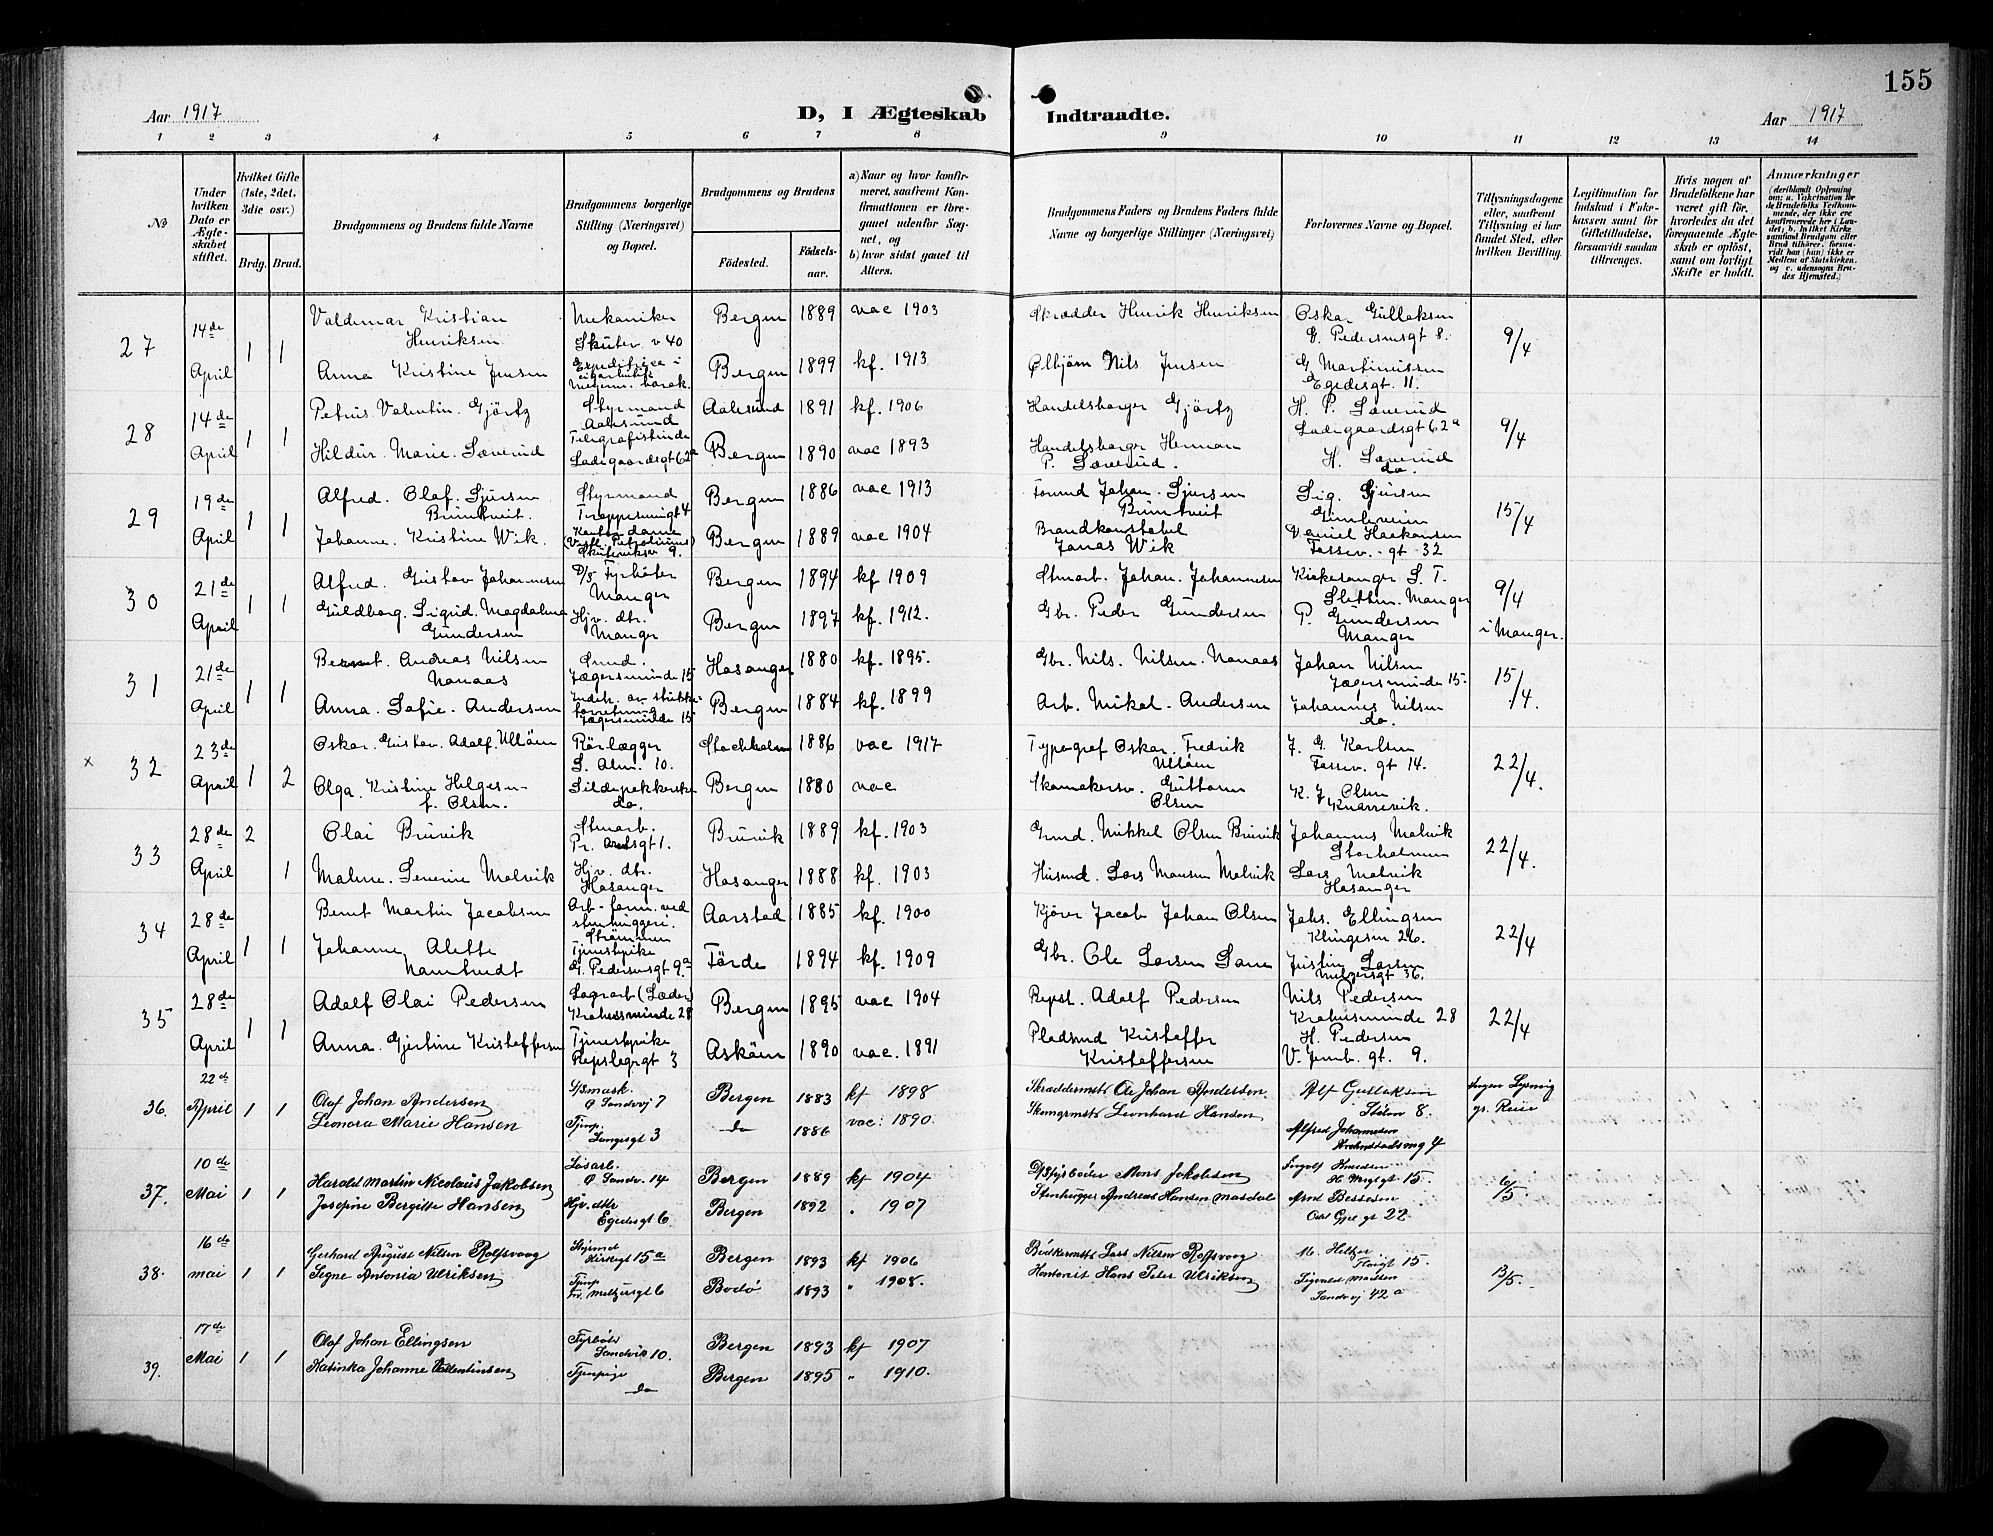 155
Aar 1917
D, I Ægteskab Indtraadte.
Aar 1917
1 2 3 4 5 6 7 8 9 10 11 12 13 14
№
Under hvilken Dato er Ægteskabet stiftet.
Hvilket Gifte (1ste, 2det, 3die osv.)
Brdg. Brud.
Brudgommens og Brudens fulde Navne
Brudgommens borgerlige Stilling (Næringsvei) og Bopæl.
Brudgommens og Brudens
Fødested.
Fødselsaar.
a) Naar og hvor konfirmeret, saafremt Konfirmationen er foregaaet udenfor Sognet, og
b) hvor sidst gaaet til Alters.
Brudgommens Faders og Brudens Faders fulde Navne og borgerlige Stillinger (Næringsvei)
Forlovernes Navne og Bopæl.
Tillysningsdagene eller, saafremt Tillysning ei har fundet Sted, efter hvilken Bevilling.
Legitimation for Indskud i Enkekassen samt for Giftetilladelse, forsaavidt saadan tiltrænges.
Hvis nogen af Brudefolkene har været gift før, hvorledes da det foregaaende Ægteskab er opløst, samt om lovligt Skifte er holdt.
Anmærkninger
27 14de April 1 1
Valdemar Kristian Henriksen Mekaniker Skutev. v 40 Bergen 1889 vac 1903 Skrædder Henrik Henriksen Oskar Gullaksen G. Pedersensgt 8. 9/4
Anna Kristine Jensen Bergen 1899 kf. 1913 Ølbjørn Nils Jensen G. Martinussen Egedesgt. 11.
28 14de April 1 1
Petrus Valentin Gjörtz Styrmand Aalesund Aalesund 1891 kf. 1906 Handelsborger Gjörtz H. P. Sæverud Ladegaardsgt 62a 9/4
Hildur Marie Sæverud Telegrafistinde Ladegaardsgt 62a Bergen 1890 vac 1893 Handelsborger Herman P. Sæverud. H. Sæverud do.
29 19de April 1 1
Alfred Olaf Sjursen Brimtveit Styrmand Trappesmugt 4 Bergen 1886 vac 1913 Formd Johan Sjursen Brimtveit Sig. Sjursen 15/4
Johanne Kristine Wik. Kontordame Skuteviksv 9. Bergen 1889 vac 1904 Brandkonstabel Jonas Wik Daniel Haakonsen Fossv.-gt 32
30 21de April 1 1
Alfred Gustav Johannesen D/S Fyrbøter Manger Bergen 1894 kf 1909 Stenarb. Johan Johannesen Kirkesanger S. T. Sletten Manger 9/4
Guldborg Sigrid Magdalena Gundersen Hjv. dtr. Manger Bergen 1897 kf. 1912. Gbr. Peder Gundersen P. Gundersen Manger i Manger.
31 21de April 1 1
Bernt Andreas Nilsen Nonaas Smed. Jægersminde 15 Hosanger 1880 kf. 1895. Gbr. Nils Nilsen Nonaas Johan Nilsen Jægersminde 15 15/4
Anna Sofie Andersen Jægersminde 15 Bergen 1884 kf. 1899 Arb. Mikal Andersen Johannes Nilsen do.
x 32 23de April 1 2
Oskar Gustav Adolf Ulløen Rörlægger S. Alm. 10. Stockholm 1886 vac 1917 Typograf Oskar Fredrik Ulløen J. G. Karlsen Fossv. gt 14. 22/4
Olga Kristine Helgesen f. Olsen. Sildepakkerske do. Bergen 1880 vac Skomakersv. Guttorm Olsen K. J. Olsen Knarrevik.
33 28de April 2 1
Olai Bruvik Stenarb. Bruvik 1889 kf. 1903 Grmd. Mikkel Olsen Bruvik Johannes Molvik Storholmen 22/4
Malene Severine Molvik Hjv. dtr. Hosanger Hosanger 1888 kf. 1903 Husmd. Lars Monsen Molvik Lars Molvik Hosanger
34 28de April 1 1
Bernt Martin Jacobsen Arb-form. ved stenhuggeri. Strömmen Aarstad 1885 kf. 1900 Kjörer Jacob Johan Olsen Johs. Ellingsen Klingesm 26. 22/4
Johanne Alette Namtvedt Tjenestpike G. Pedersensgt 9a Förde 1894 kf. 1909 Gbr. Ole Larsen Sane Justin Larsen Meltzersgt 36.
35 28de April 1 1
Adolf Olai Pedersen Lagrarb (Læder) Krohusminde 28 Bergen 1895 vac 1904 Repsl. Adolf Pedersen Nils Pedersen Krohusminde 28 22/4
Anna Gjertine Kristoffersen Tjenestpike Repslegrgt 3 Askøen 1890 vac. 1891 Pladsmd Kristoffer Kristoffersen H. Pedersen V. Jernb. gt. 9.
36. 22de April 1 1
Olaf Johan Andersen S/Smask. Ø Sandvvj 7 Bergen 1883 kf 1898 Skræddermstr Ole Johan Andersen. Alf Gullaksen Stølen 8. Ingen Lysning gr. Reise
Leonora Marie Hansen Tjenp. Langesgt 3 do 1886 vac: 1890. Skomgrmstr Leonhard Hansen Alfred Johannesen
37. 10de Mai 1 1
Harald Martin Nicolaus Jakobsen Løsarb. Ø Sandv. 14 Bergen 1889 kf 1904 D/SFyrbøder Mons Jakobsen Ingolf Knudsen 15. 6/5
Josefine Bergitte Hansen Hjv. dtr Egedesgt 6. Bergen 1892 " 1907 Stenhugger Andreas Hansen Masdal Arnt Bertesen 22
38. 16de mai 1 1
Gerhard August Nilsen Rolfsvaag Styrmd Kirkegt 15a Bergen 1893 kf 1906 Bødkermstr Lars Nilsen Rolfsvaag M. Hilger 15. 13/5.
Signe Antonia Ulriksen Tjenp Fr. Meltzersgt 6 Bodø 1893 " 1908. Kontorist Hans Peter Ulriksen Sigvald Madsen Sandvvj 42a
39. 17de Mai 1 1
Olaf Johan Ellingsen Fyrbøter Sandvik 10. Bergen 1893 kf 1907
Katinka Johanne Valentinsen Tjenpige do Bergen 1895 " 1910.